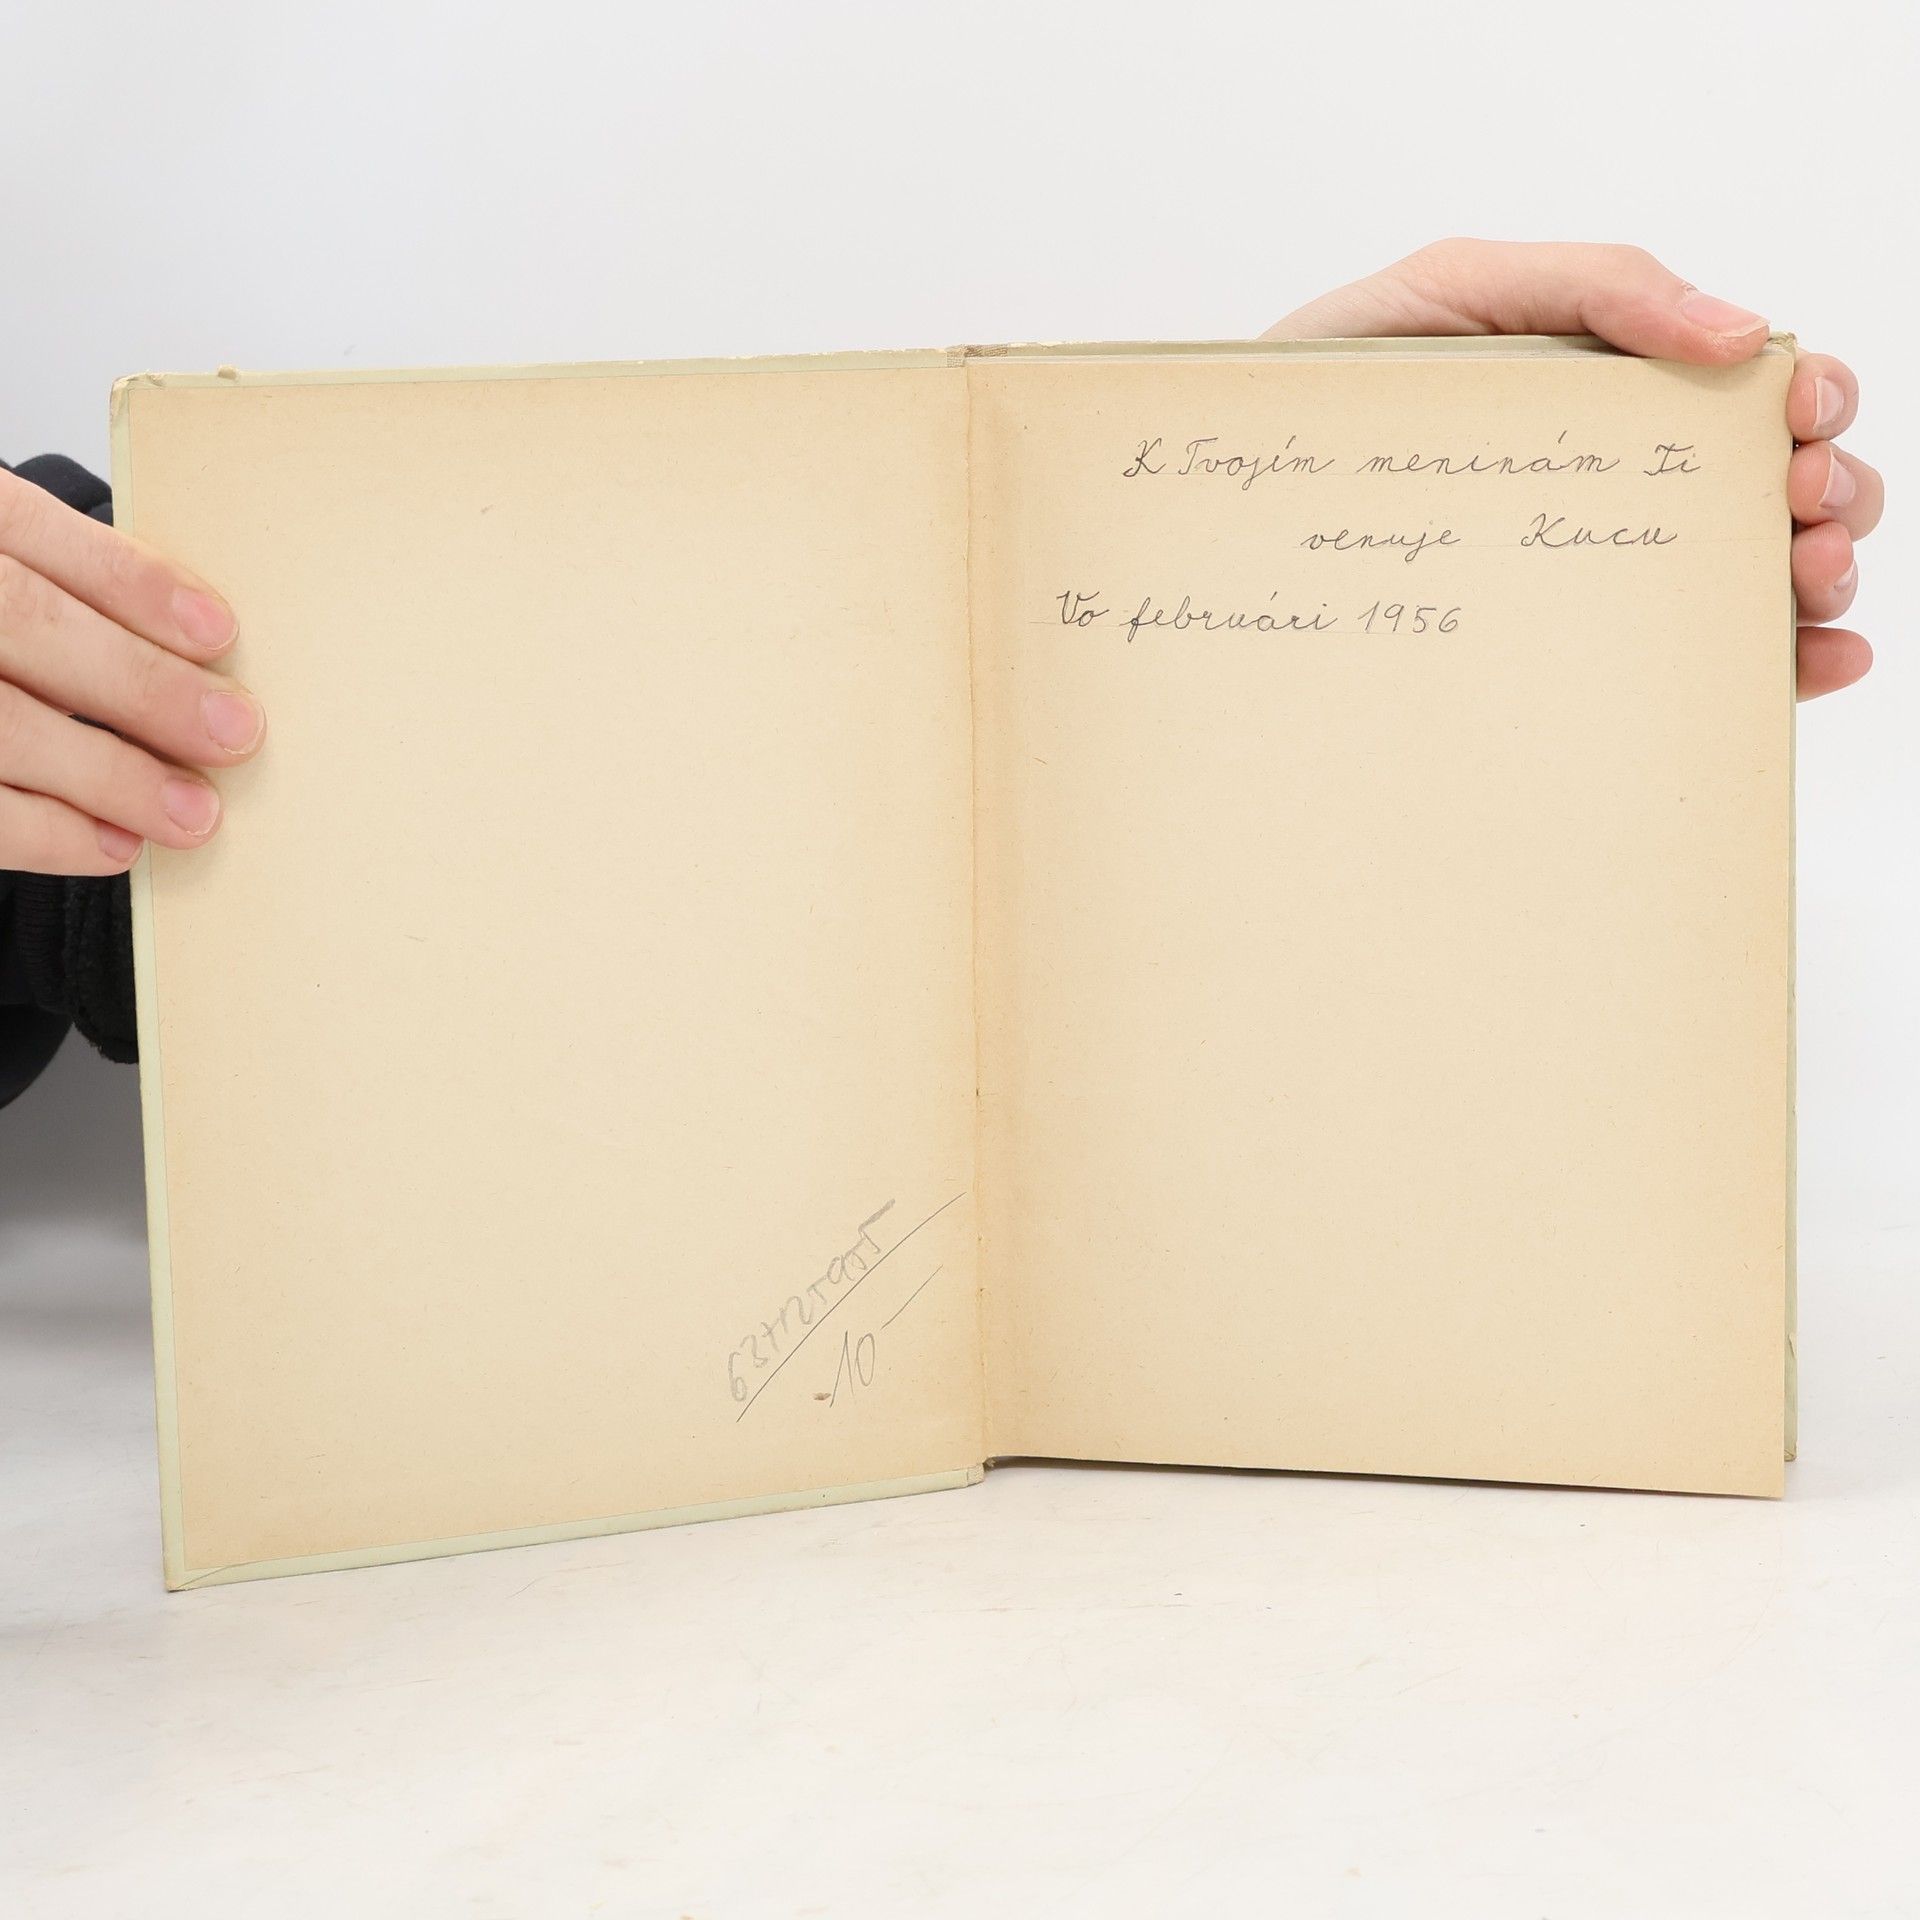 K Tvojím meninám Ti
venuje Kucu
Vo februári 1956
10-